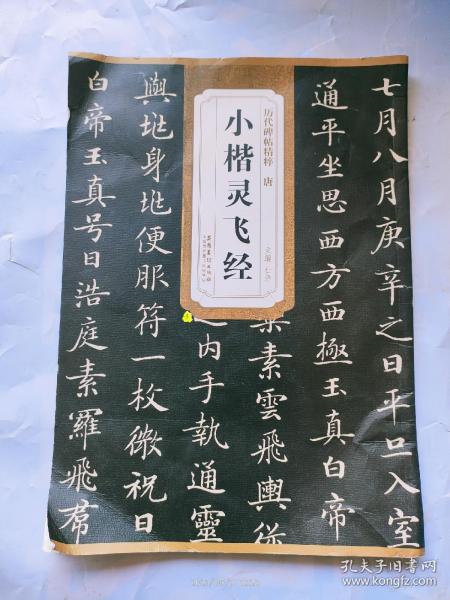 七月八月庚辛之日平旦入室
通平坐思西方西極玉真白帝
素雲飛輿從
之内手執通靈
與兆身兆便服符一枚微祝曰
白帝玉真号曰浩庭素羅飛帬
历代碑帖精粹 唐
小楷灵飞经
主编
孔夫子旧书网
www.kongfz.com